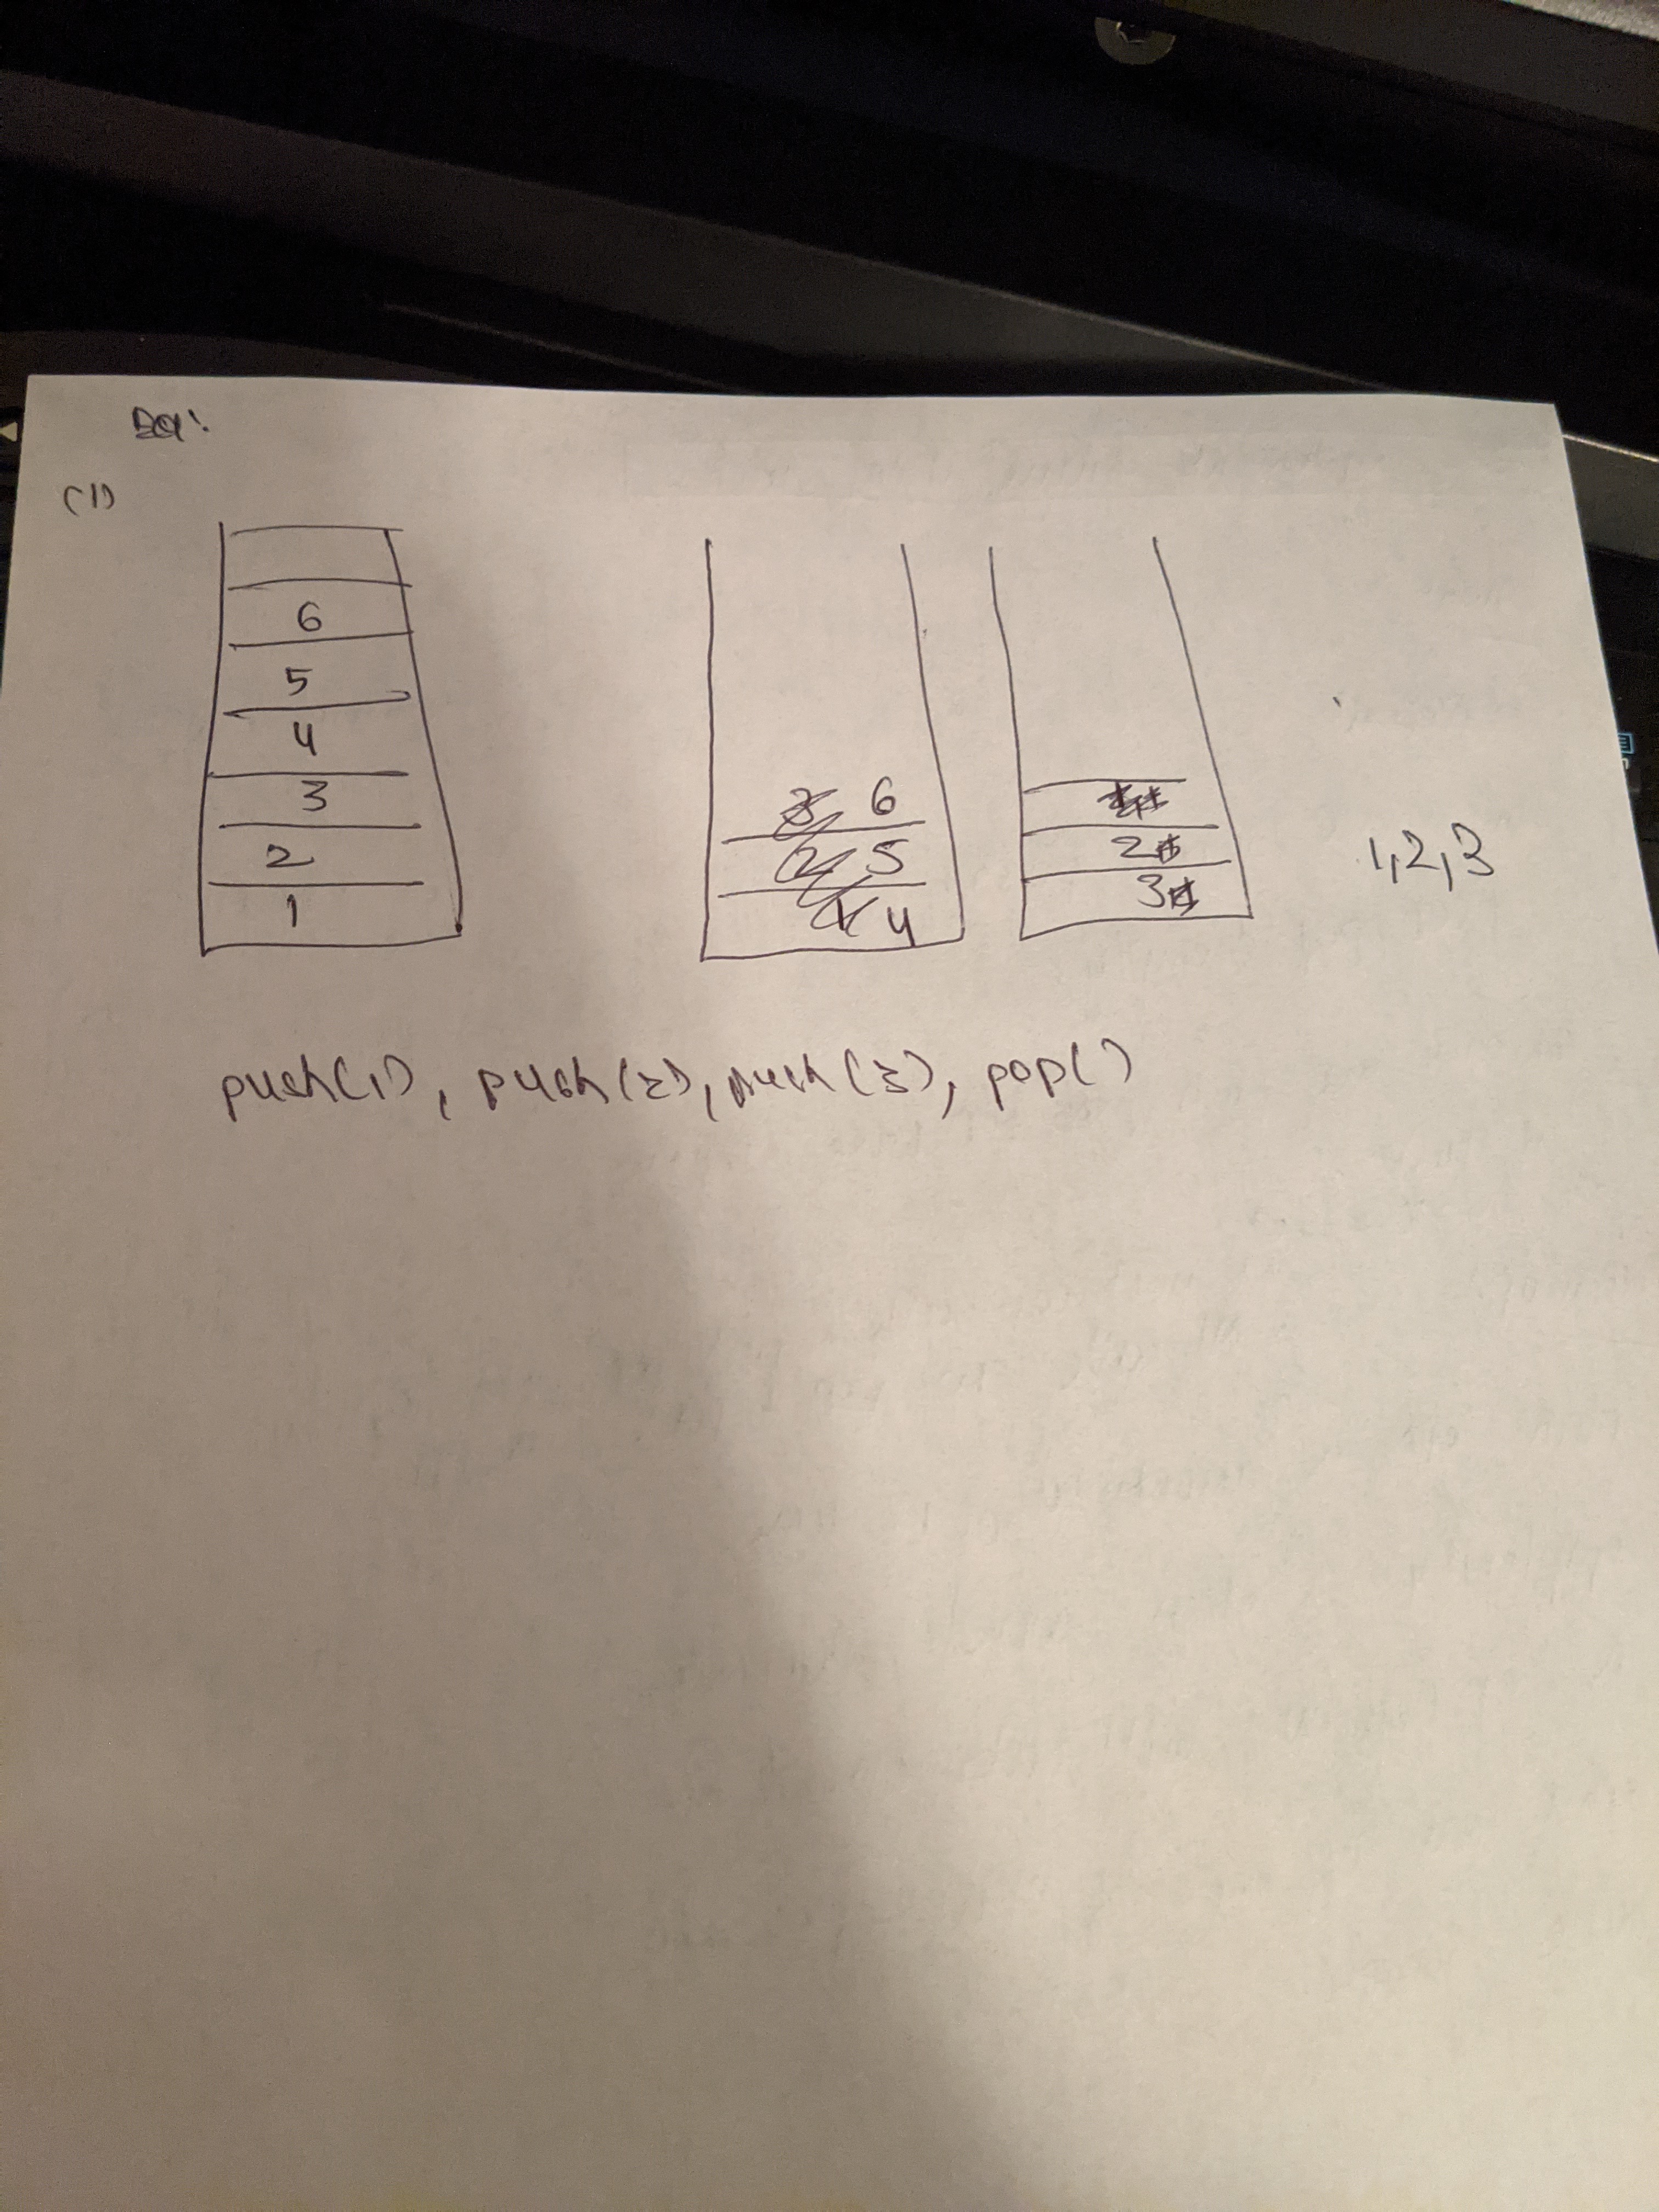 (1)
6
5
4
3
2
1
6
5
4
2
3
1,2,3
push(1), push(2), push(3), pop()